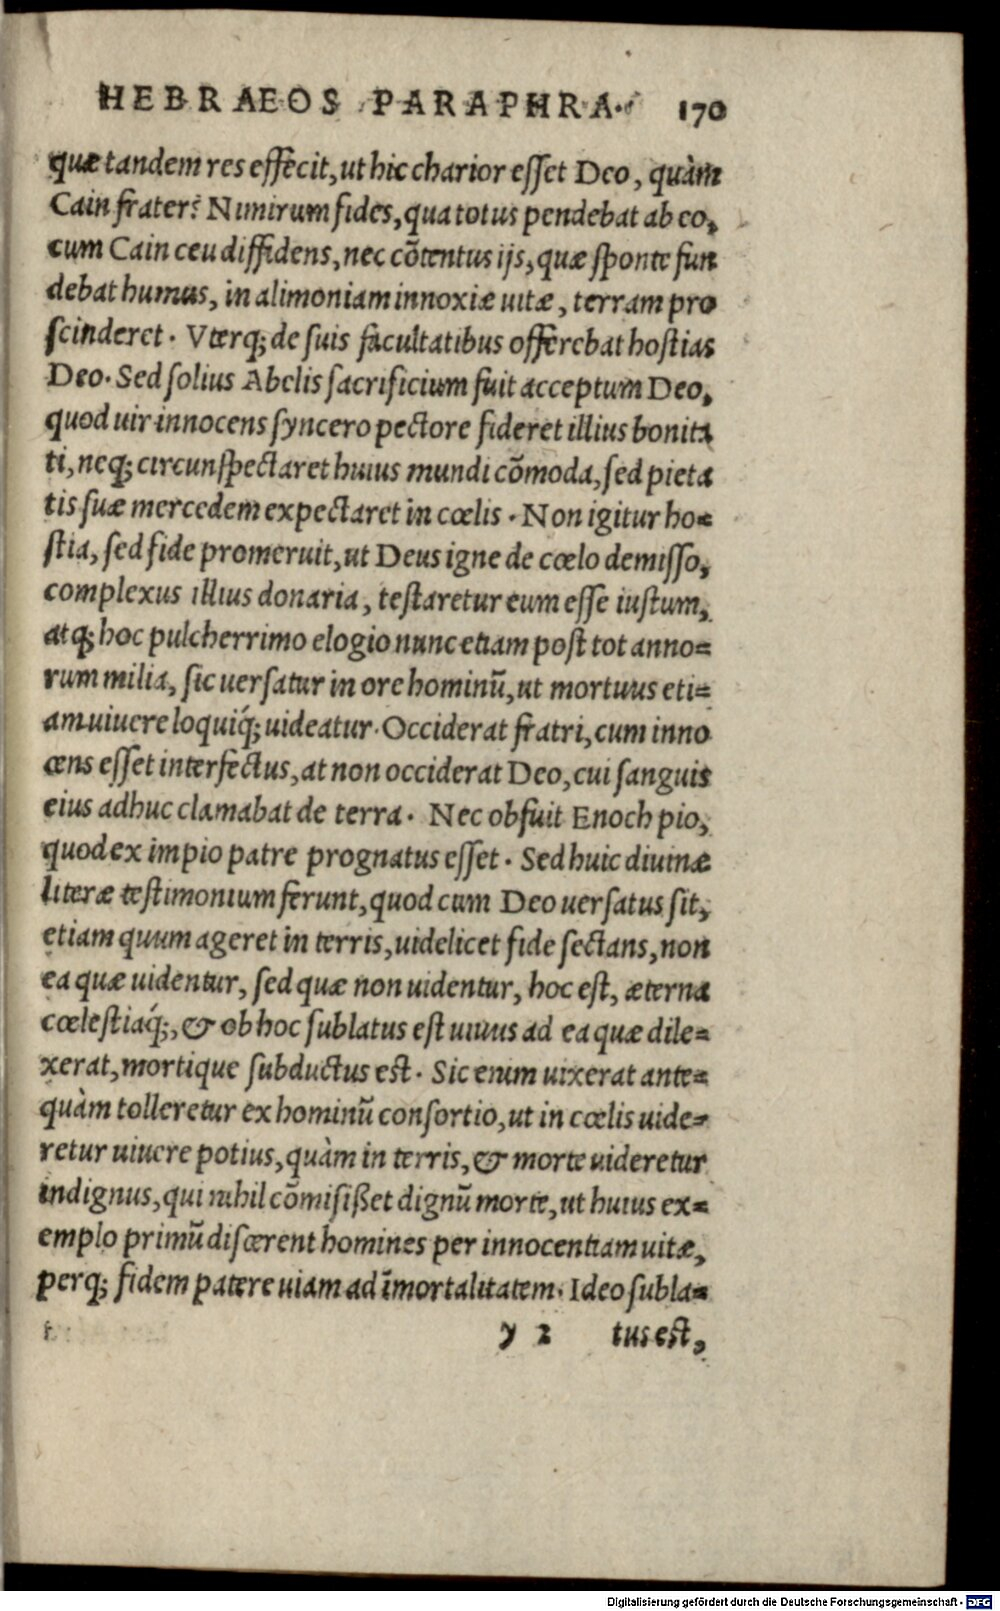 HEBRAEOS PARAPHRA. 170
quæ tandem res effecit, ut hic charior esset Deo, quàm
Cain frater? Nimirum fides, qua totus pendebat ab eo,
cum Cain ceu diffidens, nec cõtentus ijs, quæ sponte fun
debat humus, in alimoniam innoxiæ uitæ, terram pro
scinderet. Vterq; de suis facultatibus offerebat hostias
Deo. Sed solius Abelis sacrificium fuit acceptum Deo,
quod uir innocens syncero pectore fideret illius bonita
ti, neq; circunspectaret huius mundi cõmoda, sed pieta
tis suæ mercedem expectaret in cœlis. Non igitur ho=
stia, sed fide promeruit, ut Deus igne de cœlo demisso,
complexus illius donaria, testaretur eum esse iustum,
atq; hoc pulcherrimo elogio nunc etiam post tot anno=
rum milia, sic uersatur in ore hominũ, ut mortuus eti=
am uiuere loquiq́; uideatur. Occiderat fratri, cum inno
cens esset interfectus, at non occiderat Deo, cui sanguis
eius adhuc clamabat de terra. Nec obfuit Enoch pio,
quod ex impio patre prognatus esset. Sed huic diuinæ
literæ testimonium ferunt, quod cum Deo uersatus sit,
etiam quum ageret in terris, uidelicet fide sectans, non
ea quæ uidentur, sed quæ non uidentur, hoc est, æterna
cœlestiaq́;, & ob hoc sublatus est uiuus ad ea quæ dile=
xerat, mortique subductus est. Sic enim uixerat ante=
quàm tolleretur ex hominũ consortio, ut in cœlis uide=
retur uiuere potius, quàm in terris, & morte uideretur
indignus, qui nihil cõmisißet dignũ morte, ut huius ex=
emplo primũ discerent homines per innocentiam uitæ,
perq; fidem patere uiam ad īmortalitatem. Ideo subla=
y 2 tus est,
Digitalisierung gefördert durch die Deutsche Forschungsgemeinschaft - DFG